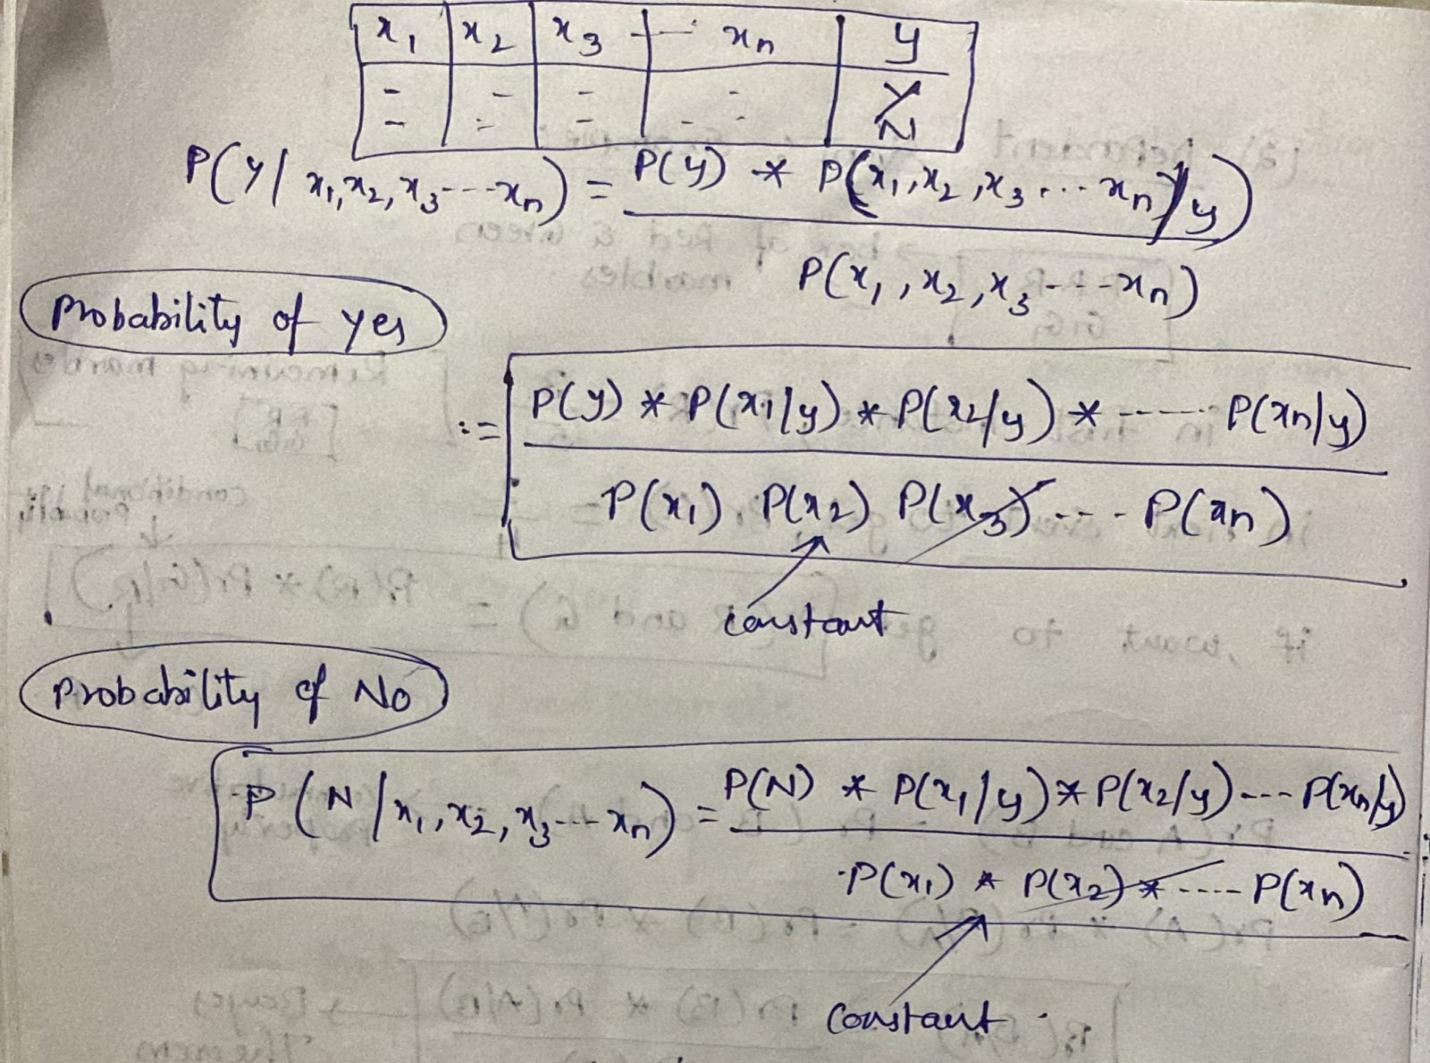 x1 x2 x3 --- xn y
- - - - Y
- - - - - N
P(y/x1,x2,x3---xn) = P(y) * P(x1,x2,x3...xn/y)
P(x1,x2,x3---xn)
Probability of yes
:= P(y) * P(x1/y) * P(x2/y) * ------ P(xn/y)
P(x1) P(x2) P(x3)--- P(xn)
constant
Probability of No
P(N/x1,x2,x3---xn) = P(N) * P(x1/y) * P(x2/y)--- P(xn/y)
P(x1) * P(x2) * ---- P(xn)
constant.